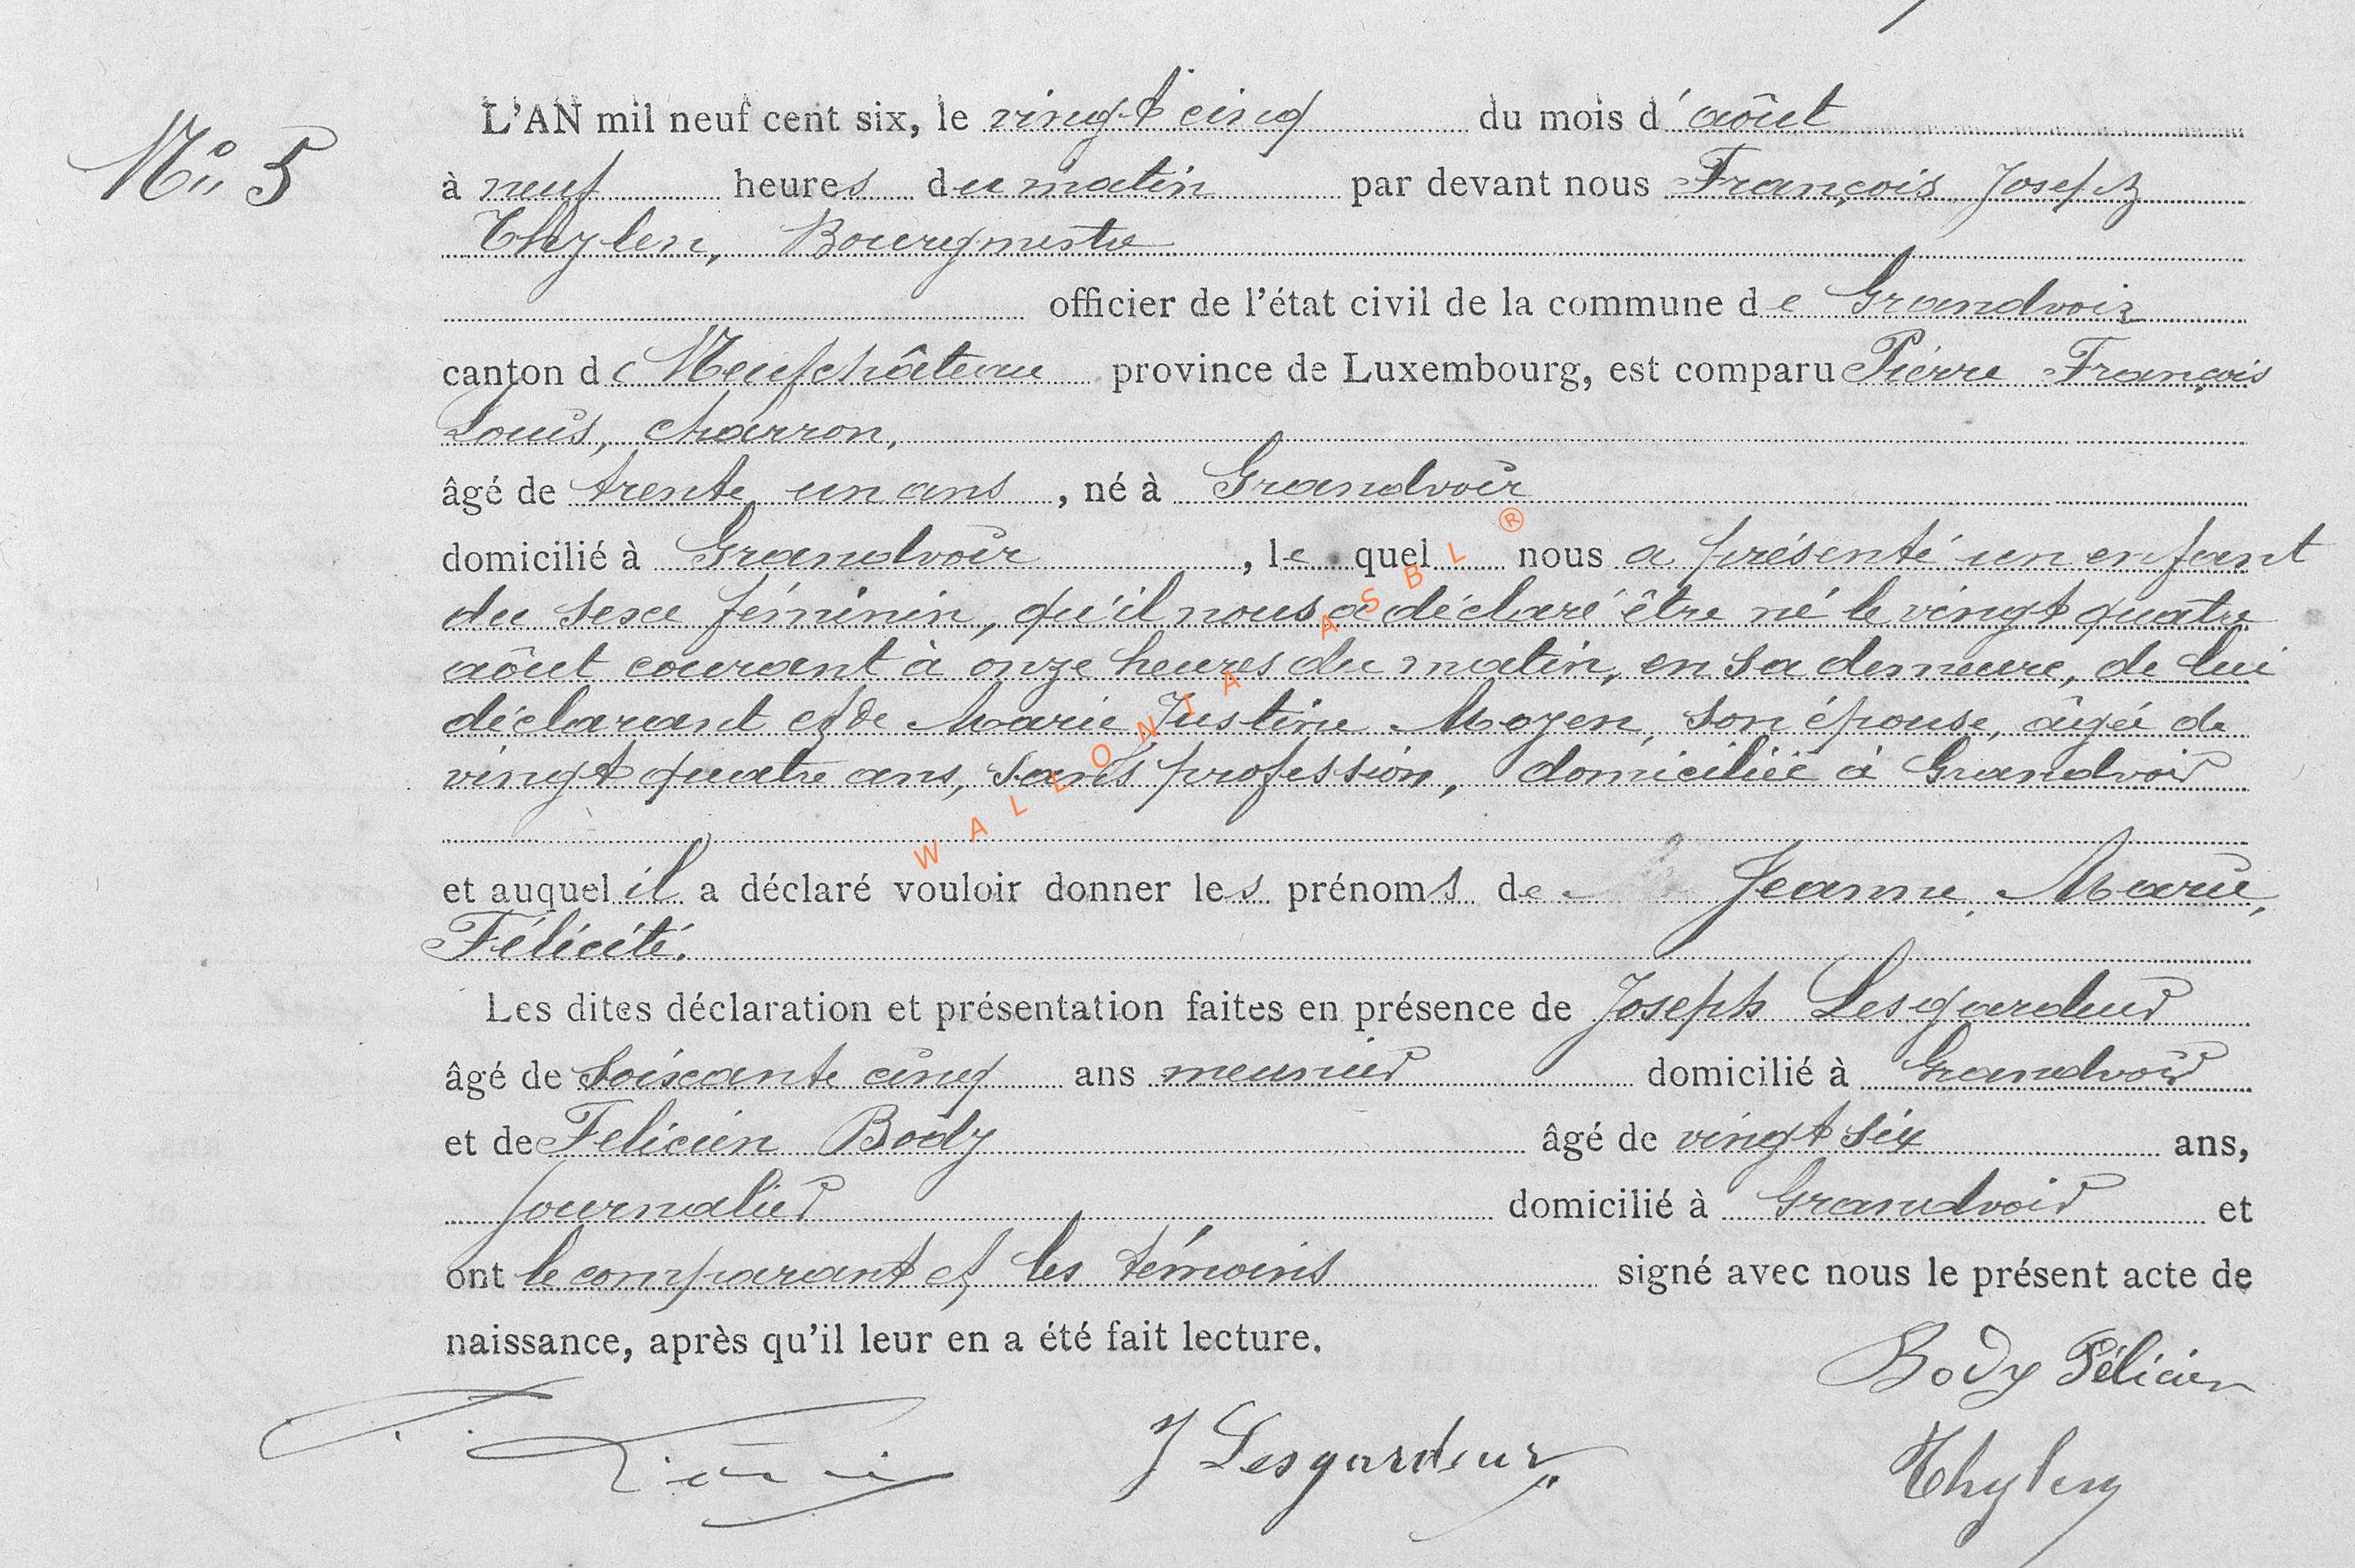 L'AN mil neuf cent six, le vingt cinq du mois d'août
No 5
à neuf heures du matin par devant nous François Joseph
Thylen, Bourgmestre
officier de l'état civil de la commune de Grandvoir
canton de Neufchâteau province de Luxembourg, est comparu Pierre François
Louis, charron,
âgé de trente un ans, né à Grandvoir
domicilié à Grandvoir, lequel nous a présenté un enfant
du sexe féminin, qu'il nous a déclaré être né le vingt quatre
août courant à onze heures du matin, en sa demeure, de lui
déclarant et de Marie Justine Moyen, son épouse, âgée de
vingt quatre ans, sans profession, domiciliée à Grandvoir
et auquel il a déclaré vouloir donner les prénoms de Jeanne, Marie,
Félicité.
Les dites déclaration et présentation faites en présence de Joseph Lesgardeur
âgé de soixante cinq ans meunier domicilié à Grandvoir
et de Felicien Body âgé de vingt six ans,
journalier domicilié à Grandvoir et
ont le comparant et les témoins signé avec nous le présent acte de
naissance, après qu'il leur en a été fait lecture.
Body Félicien
J Lesgardeur
Thylen
WALLONIA ASBL ®